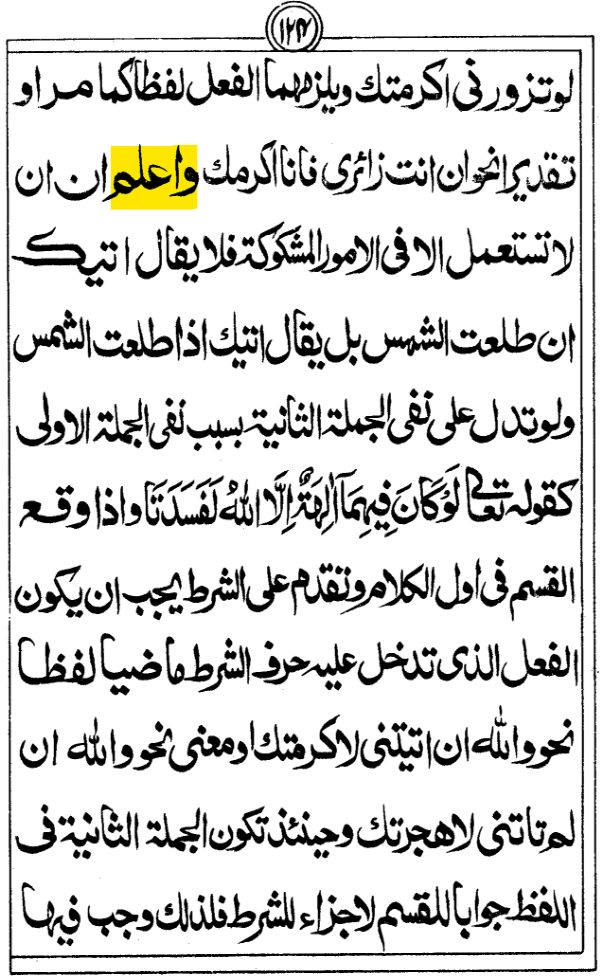 ١٢٤
لو تزورنى اكرمتك ويلزمهما الفعل لفظا كما مر او
تقديرا نحو ان انت زائرى فانا اكرمك واعلم ان ان
لا تستعمل الا فى الامور المشكوكة فلا يقال اتيك
ان طلعت الشمس بل يقال اتيك اذا طلعت الشمس
ولو تدل على نفى الجملة الثانية بسبب نفى الجملة الاولى
كقوله تعالى لَوْ كَانَ فِيهِمَآ اٰلِهَةٌ اِلَّا اللهُ لَفَسَدَتَا واذا وقع
القسم فى اول الكلام وتقدم على الشرط يجب ان يكون
الفعل الذى تدخل عليه حرف الشرط ماضيا لفظا
نحو والله ان اتيتنى لاكرمتك او معنى نحو والله ان
لم تاتنى لاهجرتك وحينئذ تكون الجملة الثانية فى
اللفظ جوابا للقسم لا جزاء للشرط فلذلك وجب فيها